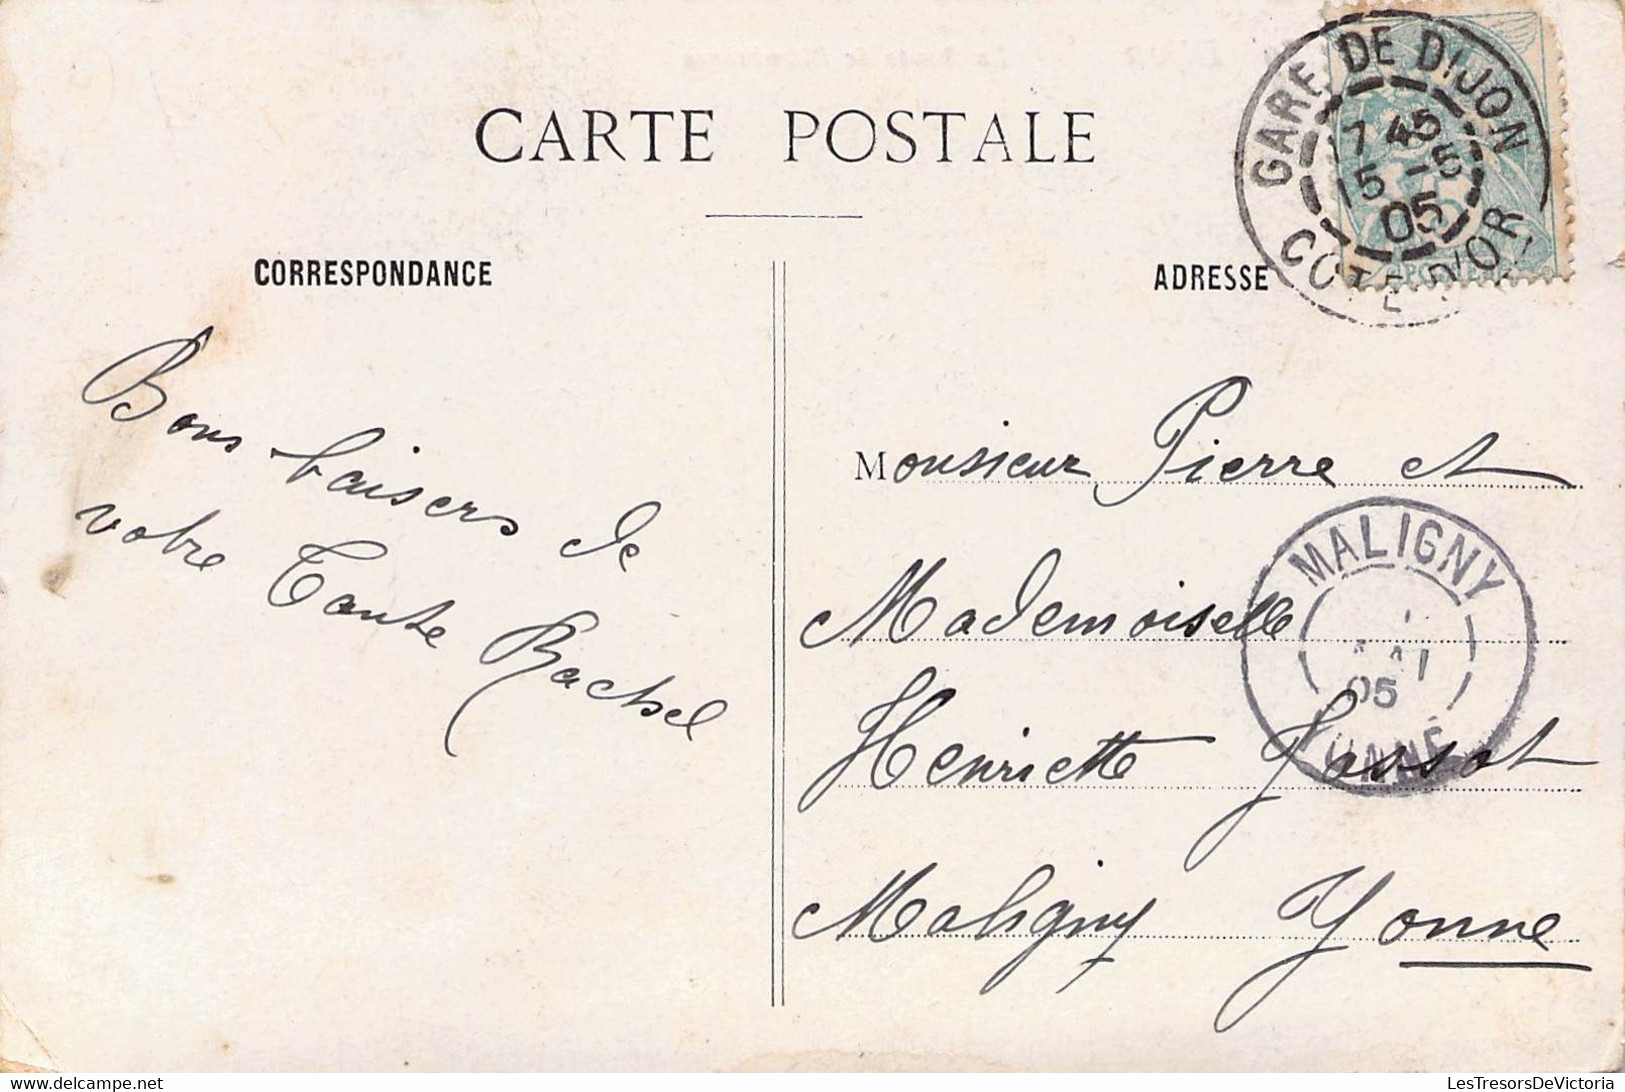 CARTE POSTALE
GARE DE DIJON
7 45
15 -5
05
COTE-D'OR
CORRESPONDANCE
ADRESSE
Bons baisers de
votre Tante Rachel
Monsieur Pierre et
Mademoiselle
Henriette Jossot
Maligny Yonne
MALIGNY
05
YONNE
www.delcampe.net
LesTresorsDeVictoria